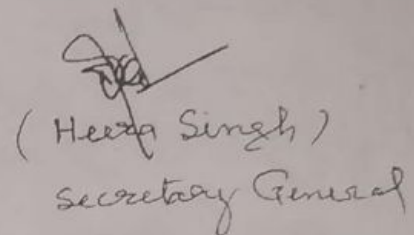 ( Heera Singh )
Secretary General